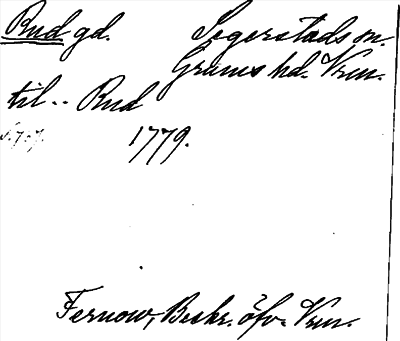 Rud gd. Segerstads sn.
Grums hd. Vrm.
til.. Rud
S. 707. 1779.
Fernow, Beskr. öfv. Vrm.